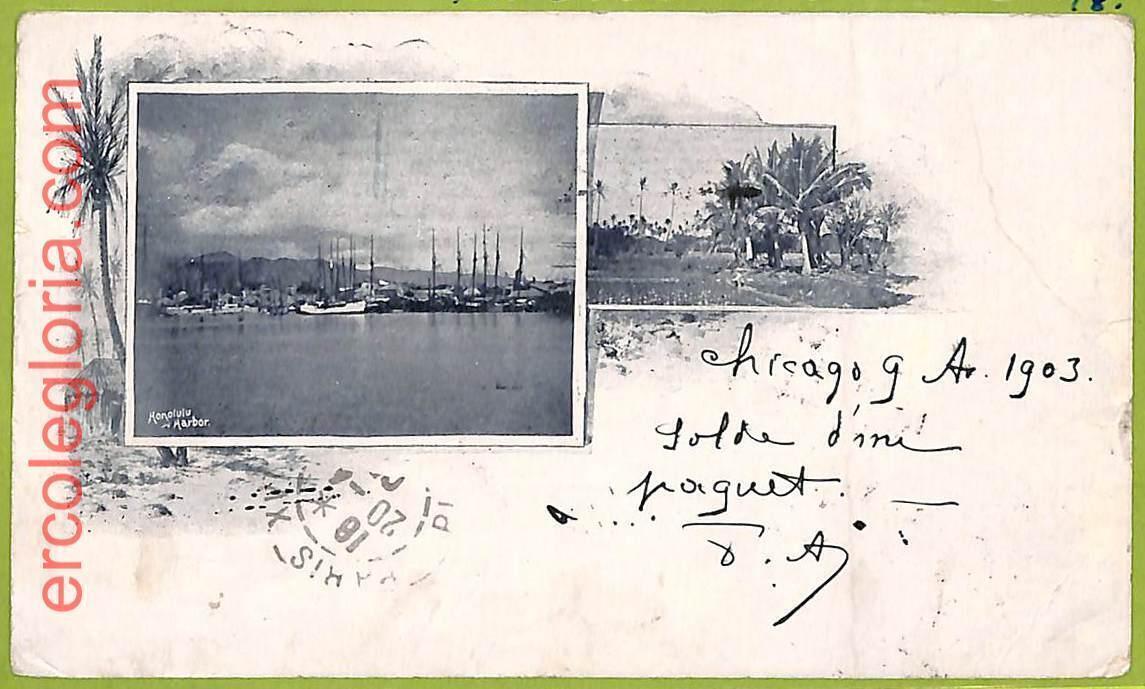 18.
ercolegloria.com
Honolulu
Harbor.
Chicago 9 Av. 1903.
Solde d'une
paquet.
PARIS
18
20